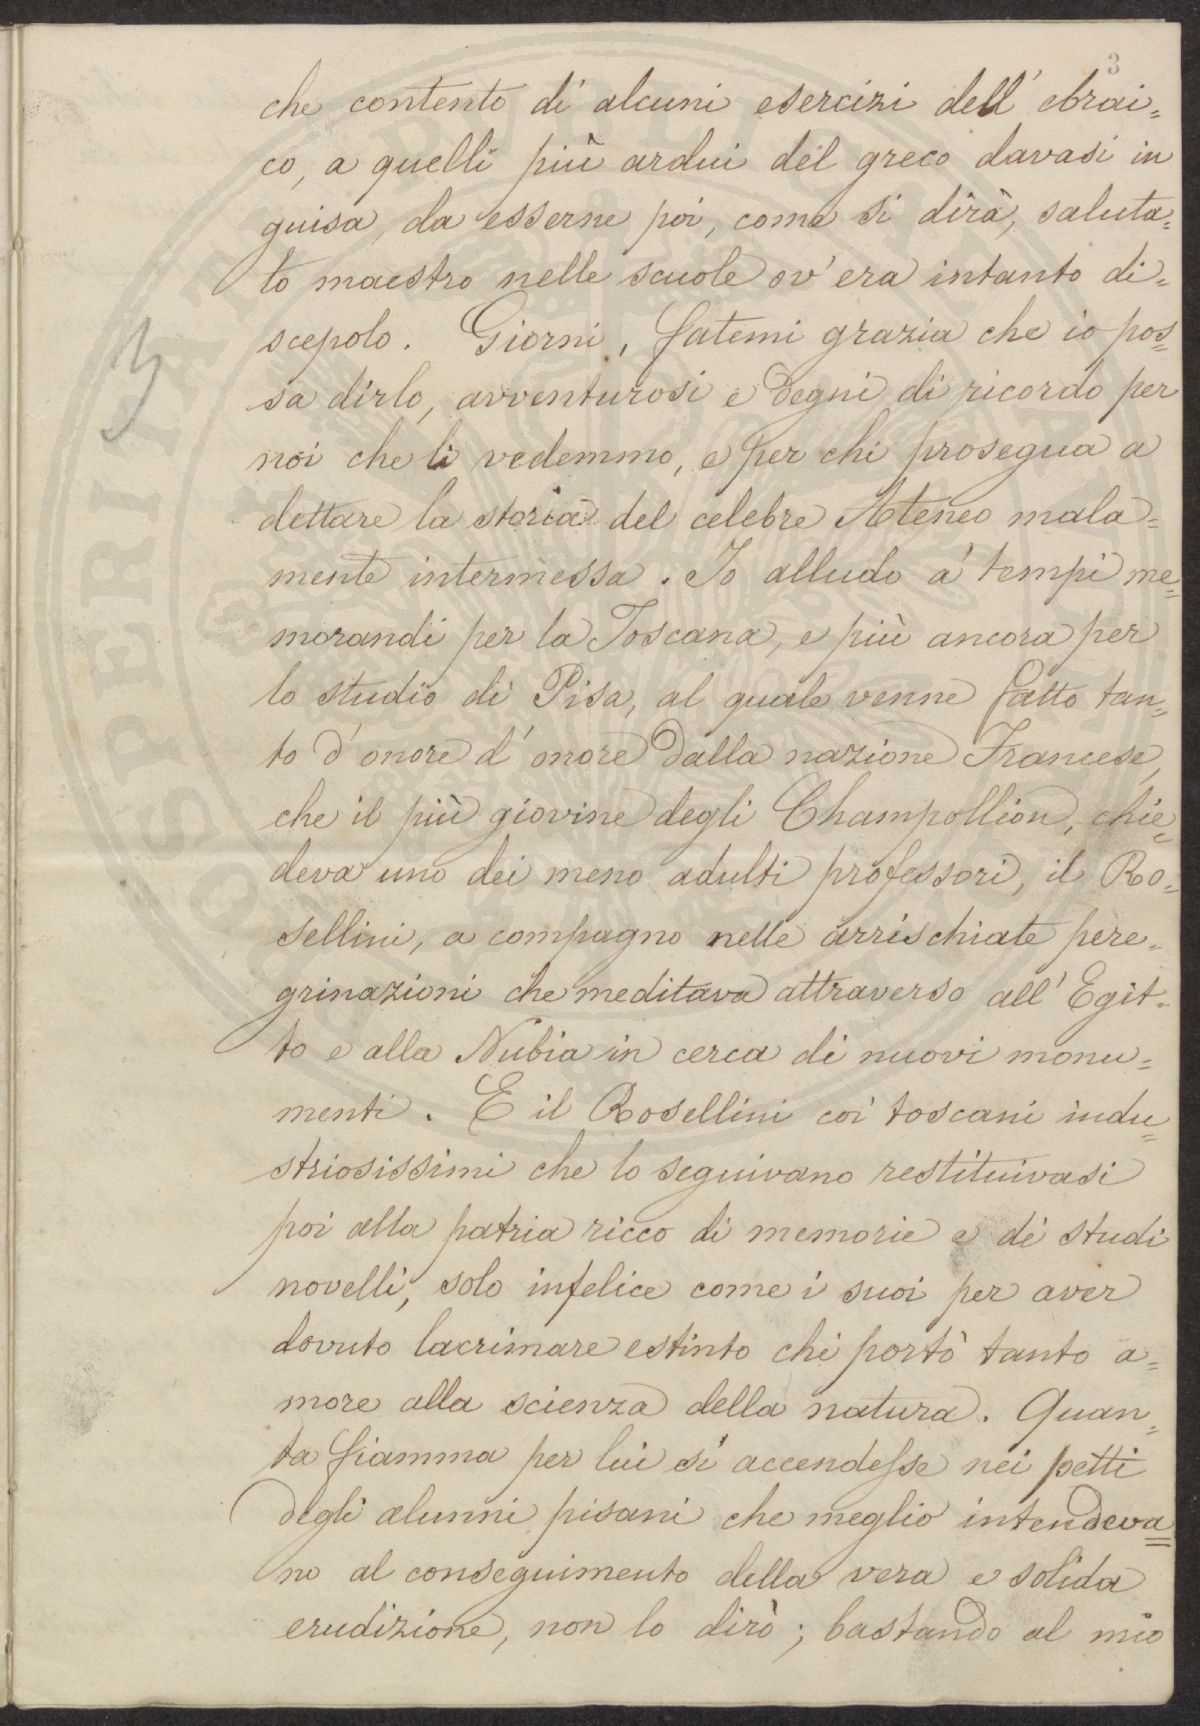 3
che contento di alcuni esercizi dell' ebrai=
co, a quelli più ardui del greco davasi in
guisa, da esserne poi, come si dirà, saluta=
to maestro nelle scuole ov' era intanto di=
scepolo. Giorni, fatemi grazia che io pos=
sa dirlo, avventurosi e degni di ricordo per
noi che li vedemmo, e per chi prosegua a
dettare la storia del celebre Ateneo mala=
mente intermessa. Io alludo a' tempi me=
morandi per la Toscana, e più ancora per
lo studio di Pisa, al quale venne fatto tan=
to d' onore d' onore dalla nazione Francese,
che il più giovine degli Champollion, chie=
deva uno dei meno adulti professori, il Ro=
sellini, a compagno nelle arrischiate pere=
grinazioni che meditava attraverso all' Egit=
to e alla Nubia in cerca di nuovi monu=
menti. E il Rosellini coi toscani indu=
striosissimi che lo seguivano restituivasi
poi alla patria ricco di memorie e di studi
novelli, solo infelice come i suoi per aver
dovuto lacrimare estinto chi portò tanto a=
more alla scienza della natura. Quan=
ta fiamma per lui si accendesse nei petti
degli alunni pisani che meglio intendeva=
no al conseguimento della vera e solida
erudizione, non lo dirò; bastando al mio
3
PROSPERITATI PUBLICAE